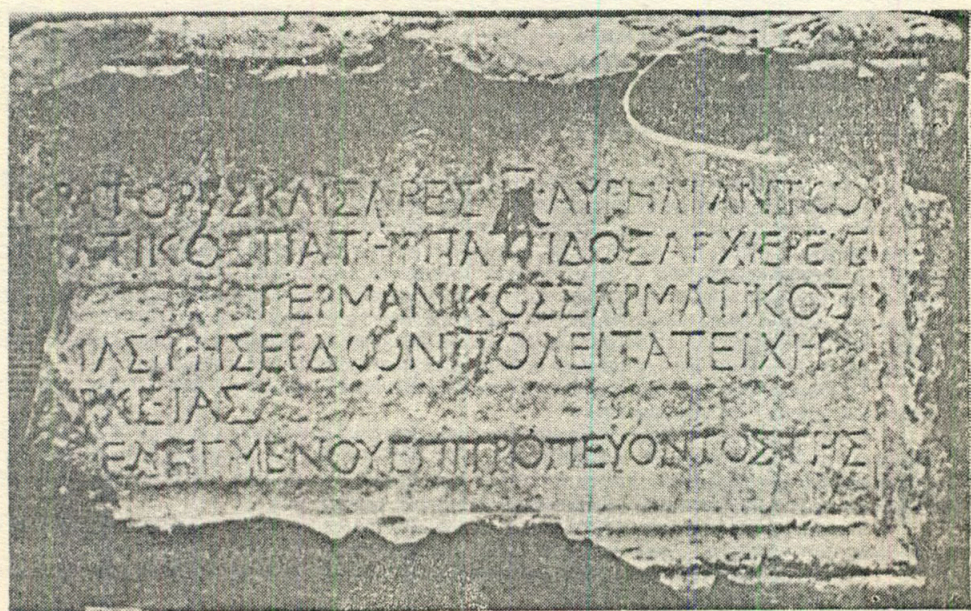 ΚΡΑΤΟΡΕΣ ΚΑΙΣΑΡΕΣ Μ ΑΥΡΗΛΙ ΑΝΤΩ
ΤΙΚΟΣ ΠΑΤΗΡ ΠΑΤΡΙΔΟΣ ΑΡΧΙΕΡΕΥΣ
ΓΕΡΜΑΝΙΚΟΣ ΣΑΡΜΑΤΙΚΟΣ
ΙΑΣΤΗΣΕΙΔΩΝΠΟΛΕΙ ΤΑ ΤΕΙΧΗ
ΡΚΕΙΑΣ
ΕΔΗΓΜΕΝΟΥ ΕΠΙΤΡΟΠΕΥΟΝΤΟΣ ΤΗΣ